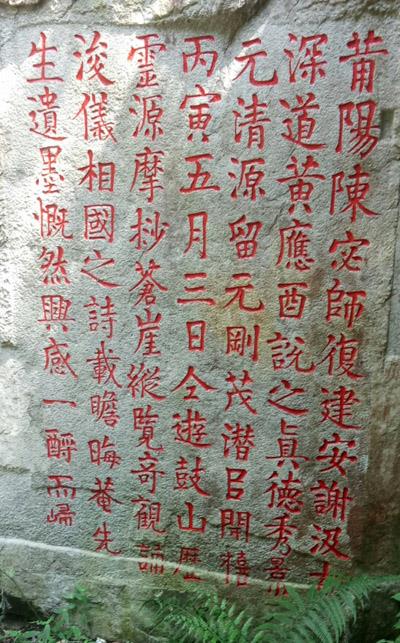 莆陽陳宓師復建安謝汲
深道黄應酉說之真德秀景
元清源留元剛茂潜㠯開禧
丙寅五月三日仝遊鼓山歷
靈源摩挱蒼崖縱覽奇觀誦
浚儀相國之詩載瞻晦菴先
生遺墨慨然興感一酹而歸